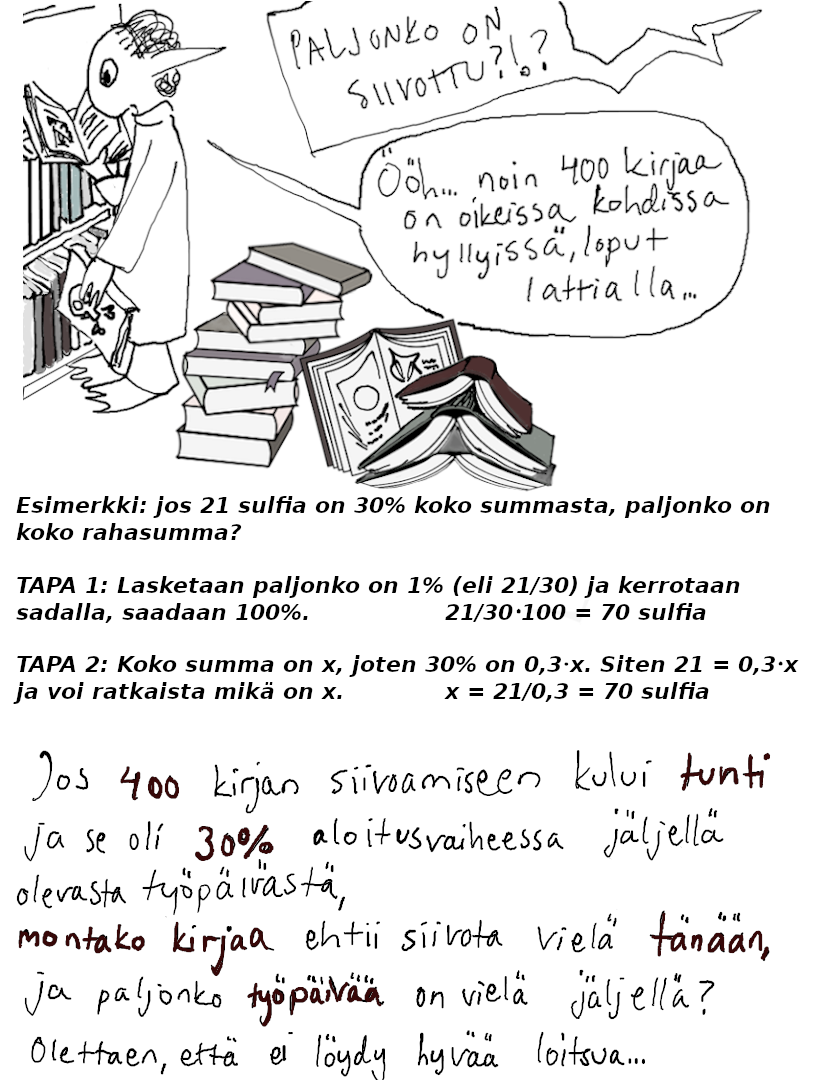 PALJONKO ON
SIIVOTTU?!.?
Ööh... noin 400 kirjaa
on oikeissa kohdissa
hyllyissä, loput
lattialla...
Esimerkki: jos 21 sulfia on 30% koko summasta, paljonko on
koko rahasumma?
TAPA 1: Lasketaan paljonko on 1% (eli 21/30) ja kerrotaan
sadalla, saadaan 100%. 21/30·100 = 70 sulfia
TAPA 2: Koko summa on x, joten 30% on 0,3·x. Siten 21 = 0,3·x
ja voi ratkaista mikä on x. x = 21/0,3 = 70 sulfia
Jos 400 kirjan siivoamiseen kului tunti
ja se oli 30% aloitusvaiheessa jäljellä
olevasta työpäivästä,
montako kirjaa ehtii siivota vielä tänään,
ja paljonko työpäivää on vielä jäljellä?
Olettaen, että ei löydy hyvää loitsua...